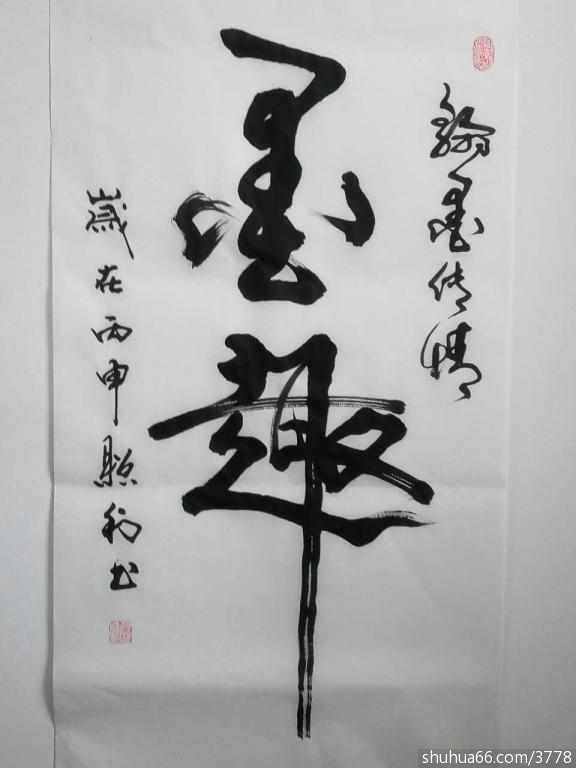 翰墨传情
墨趣
岁在丙申
书
shuhua66.com/3778